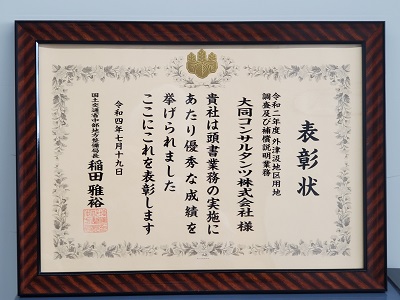 表彰状
令和二年度 外津汲地区用地
調査及び補償説明業務
大同コンサルタンツ株式会社 様
貴社は頭書業務の実施に
あたり優秀な成績を
挙げられました
ここにこれを表彰します
令和四年七月十九日
国土交通省中部地方整備局長 稲田 雅裕